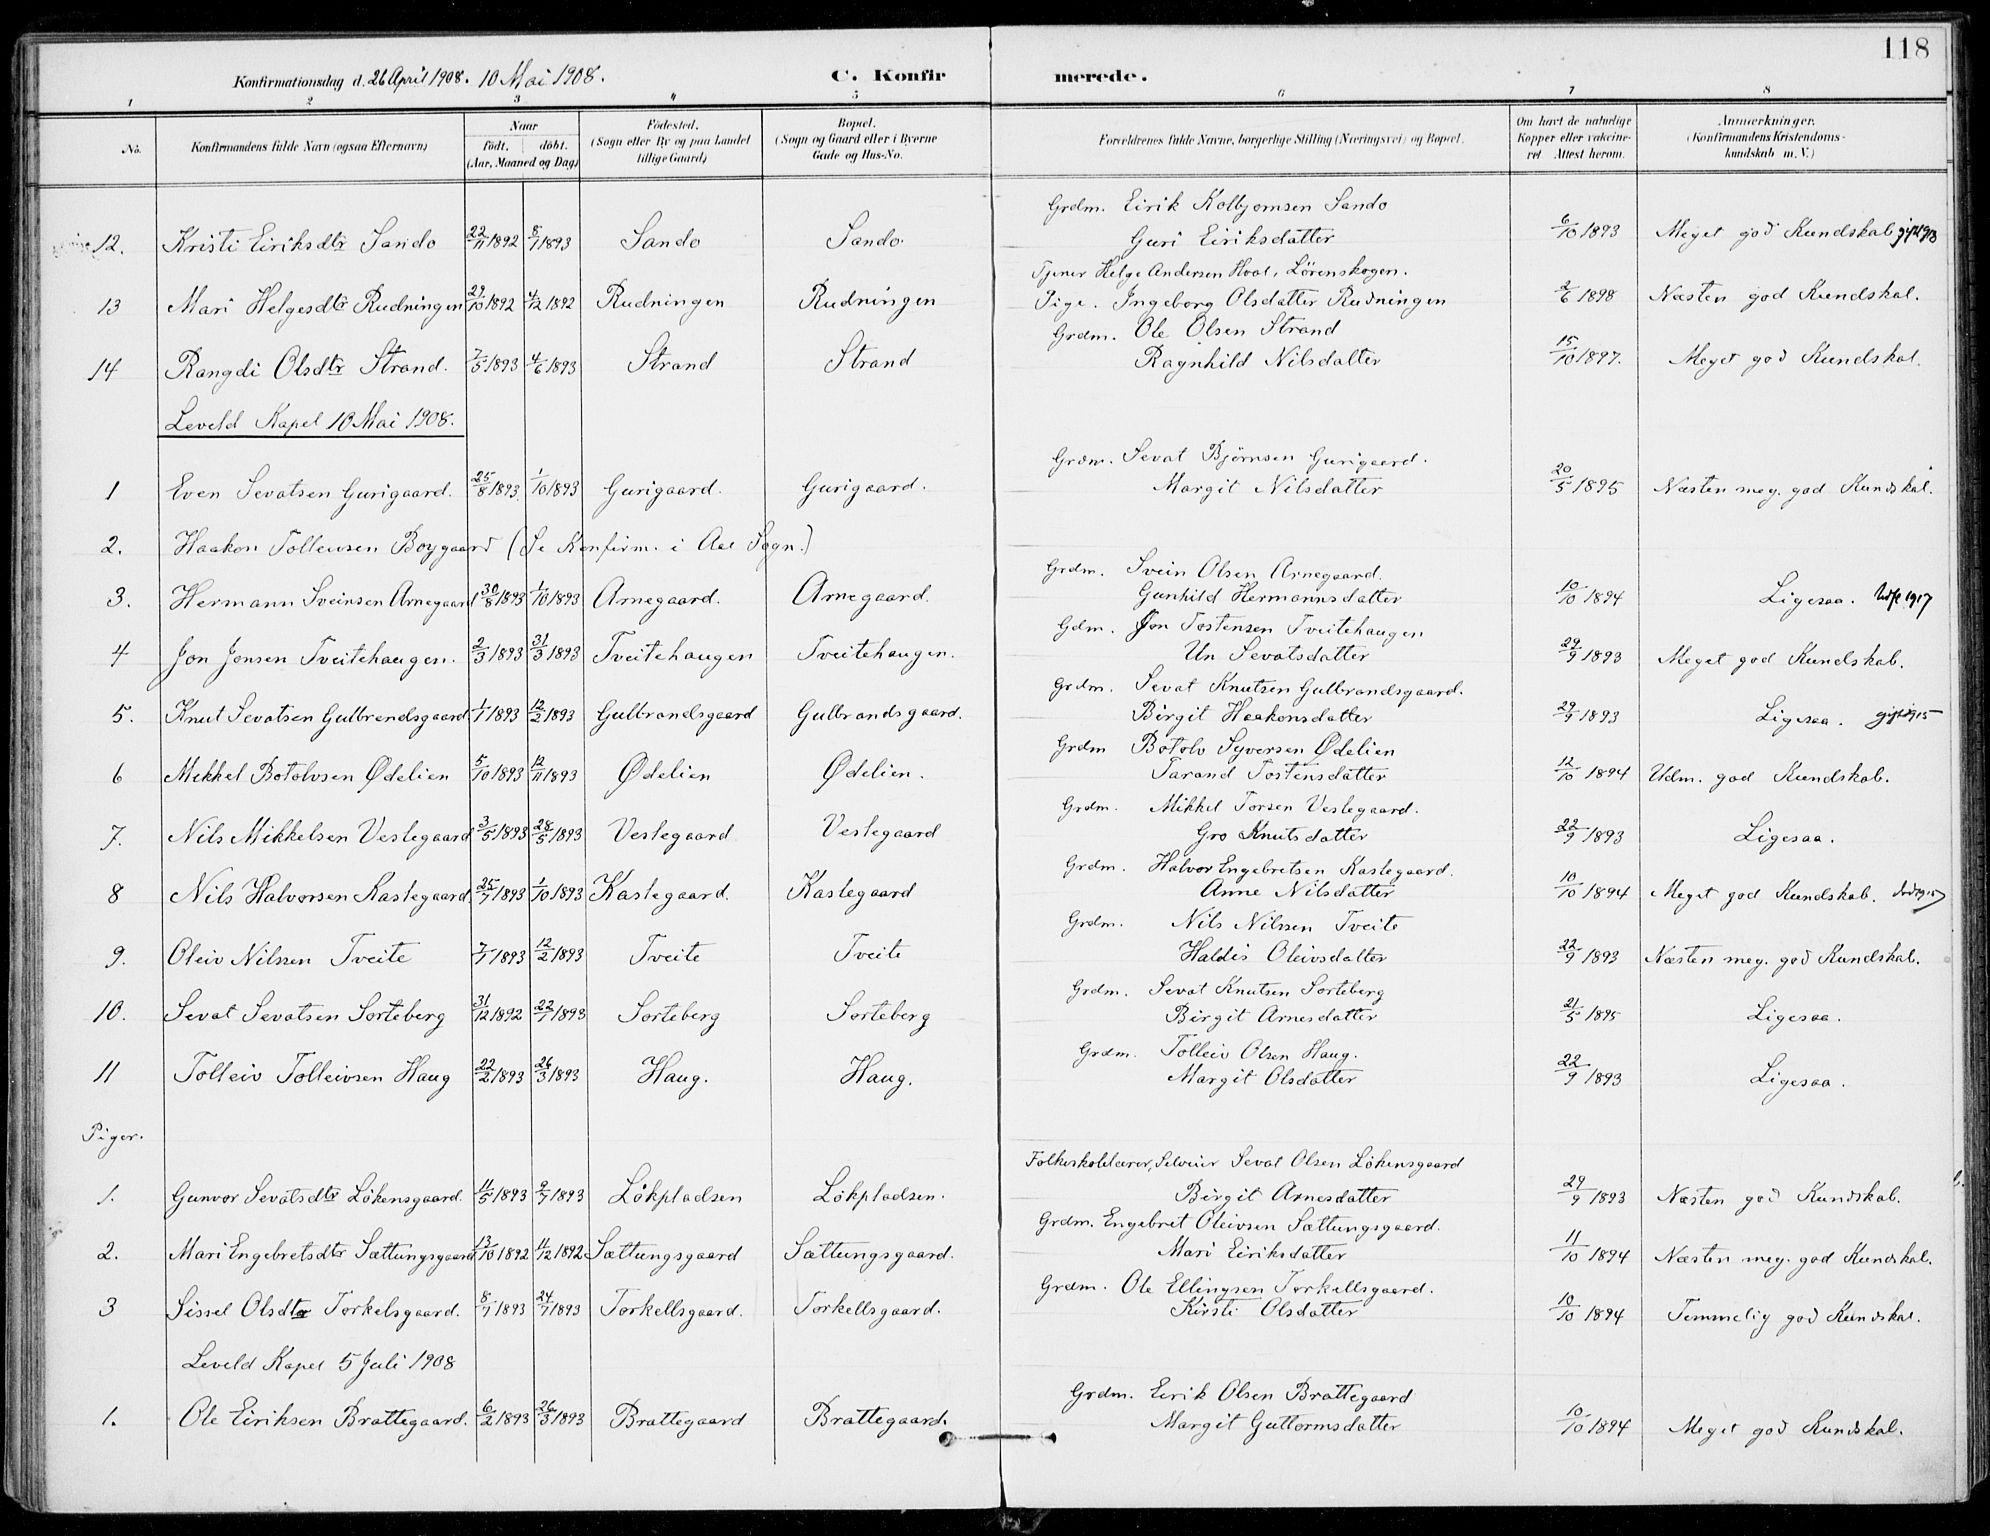 118
Konfirmationsdag d. 26 April 1908. 10 Mai 1908.
C. Konfirmerede.
1 2 3 4 5 6 7 8
No. Konfirmandens fulde Navn (ogsaa Efternavn) Naar födt. döbt. (Aar, Maaned og Dag) Födested. (Sogn eller By og paa Landet tillige Gaard) Bopæl. (Sogn og Gaard eller i Byerne Gade og Hus-No. Forældrenes fulde Navne, borgerlige Stilling (Næringsvei) og Bopæl. Om havt de naturlige Kopper eller vaccineret Attest herom. Anmærkninger. (Konfirmandens Kristendomskundskab m. V.)
Grdm. Eirik Kolbjornsen Sando
12. Kristi Eiriksdtr Sando 22/11 1892 8/1 1893 Sando Sando. Guri Eiriksdatter 6/10 1893 Meget god Kundskab gift 1913
Tjener Helge Andersen Hoal, Lörenskogen.
13 Mari Helgesdtr Rudningen 29/10 1892 4/12 1892 Rudningen Rudningen Pige. Ingeborg Olsdatter Rudningen 2/6 1898 Næsten god Kundskab.
Grdm. Ole Olsen Strand
14 Rangdi Olsdtr Strand. 7/5 1893 4/6 1893 Strand Strand Ragnhild Nilsdatter 15/10 1897. Meget god Kundskab.
Leveld Kapel 10 Mai 1908.
Grdm. Sevat Bjørnsen Gurigaard.
1 Even Sevatsen Gurigaard. 25/8 1893 1/10 1893 Gurigaard. Gurigaard. Margit Nilsdatter 20/5 1895 Næsten meg. god Kundskab.
2. Haakon Tolleivsen Boygaard (Se Konfirm. i Aal Sogn.)
Grdm. Svein Olsen Arnegaard.
3. Hermann Sveinsen Arnegaard 30/8 1893 1/10 1893 Arnegaard. Arnegaard. Gunhild Hermannsdatter 10/10 1894 Ligesaa. 1917
Gdm. Jon Tostensen Tveitehaugen
4 Jon Jonsen Tveitehaugen. 2/3 1893 31/3 1893 Tveitehaugen Tveitehaugen. Un Sevatsdatter 29/9 1893 Meget god Kundskab.
Grdm. Sevat Knutsen Gulbrandsgaard.
5. Knut Sevatsen Gulbrandsgaard 1/1 1893 12/2 1893 Gulbrandsgaard Gulbrandsgaard. Birgit Haakonsdatter 29/9 1893 Ligesaa. gift 1915
Grdm Botolv Syversen Ødelien
6 Mikkel Botolvsen Ødelien 5/10 1893 12/11 1893 Ødelien Ødelien. Tarand Tostensdatter 12/10 1894 Udm. god Kundskab.
Grdm. Mikkel Torsen Vestegaard.
7. Nils Mikkelsen Vestegaard 3/5 1893 28/5 1893 Vestegaard Vestegaard Gro Knutsdatter 22/9 1893 Ligesaa.
Grdm. Halvor Engebretsen Kastegaard.
8 Nils Halvorsen Kastegaard 25/7 1893 1/10 1893 Kastegaard. Kastegaard Anne Nilsdatter 10/10 1894 Meget god Kundskab.
Grdm. Nils Nilssen Tveite
9. Oleiv Nilssen Tveite 7/1 1893 12/2 1893 Tveite Tveite Haldis Oleivsdatter 22/9 1893 Næsten meg. god Kundskab.
Grdm. Sevat Knutsen Sorteberg
10. Sevat Sevatsen Sorteberg 31/12 1892 22/1 1893 Sorteberg Sorteberg Birgit Arnesdatter 21/5 1895 Ligesaa.
Grdm. Tolleiv Olsen Haug.
11 Tolleiv Tolleivsen Haug 22/2 1893 26/3 1893 Haug. Haug. Margit Olsdatter 22/9 1893 Ligesaa.
Piger.
Folkeskolelærer, Selveier Sevat Olsen Lökensgaard
1. Gunvor Sevatsdtr Lökensgaard. 11/5 1893 9/7 1893 Lökpladsen Lökpladsen. Birgit Arnesdatter 29/9 1893 Næsten god Kundskab.
Grdm. Engebret Oleivsen Sættungsgaard.
2. Mari Engebretsdtr Sættungsgaard 13/10 1892 11/12 1892 Sættungsgaard Sættungsgaard. Mari Eiriksdatter 11/10 1894 Næsten meg. god Kundskab.
Grdm. Ole Ellingsen Torkellsgaard.
3 Sissel Olsdtr Torkelsgaard. 8/7 1893 24/7 1893 Torkellsgaard. Torkellsgaard. Kirsti Olsdatter 10/10 1894 Temmelig god Kundskab.
Leveld Kapel 5 Juli 1908
Grdm. Eirik Olsen Brattegaard
1. Ole Eiriksen Brattegaard. 6/2 1893 26/3 1893 Brattegaard Brattegaard. Margit Guttormsdatter 10/10 1894 Meget god Kundskab.